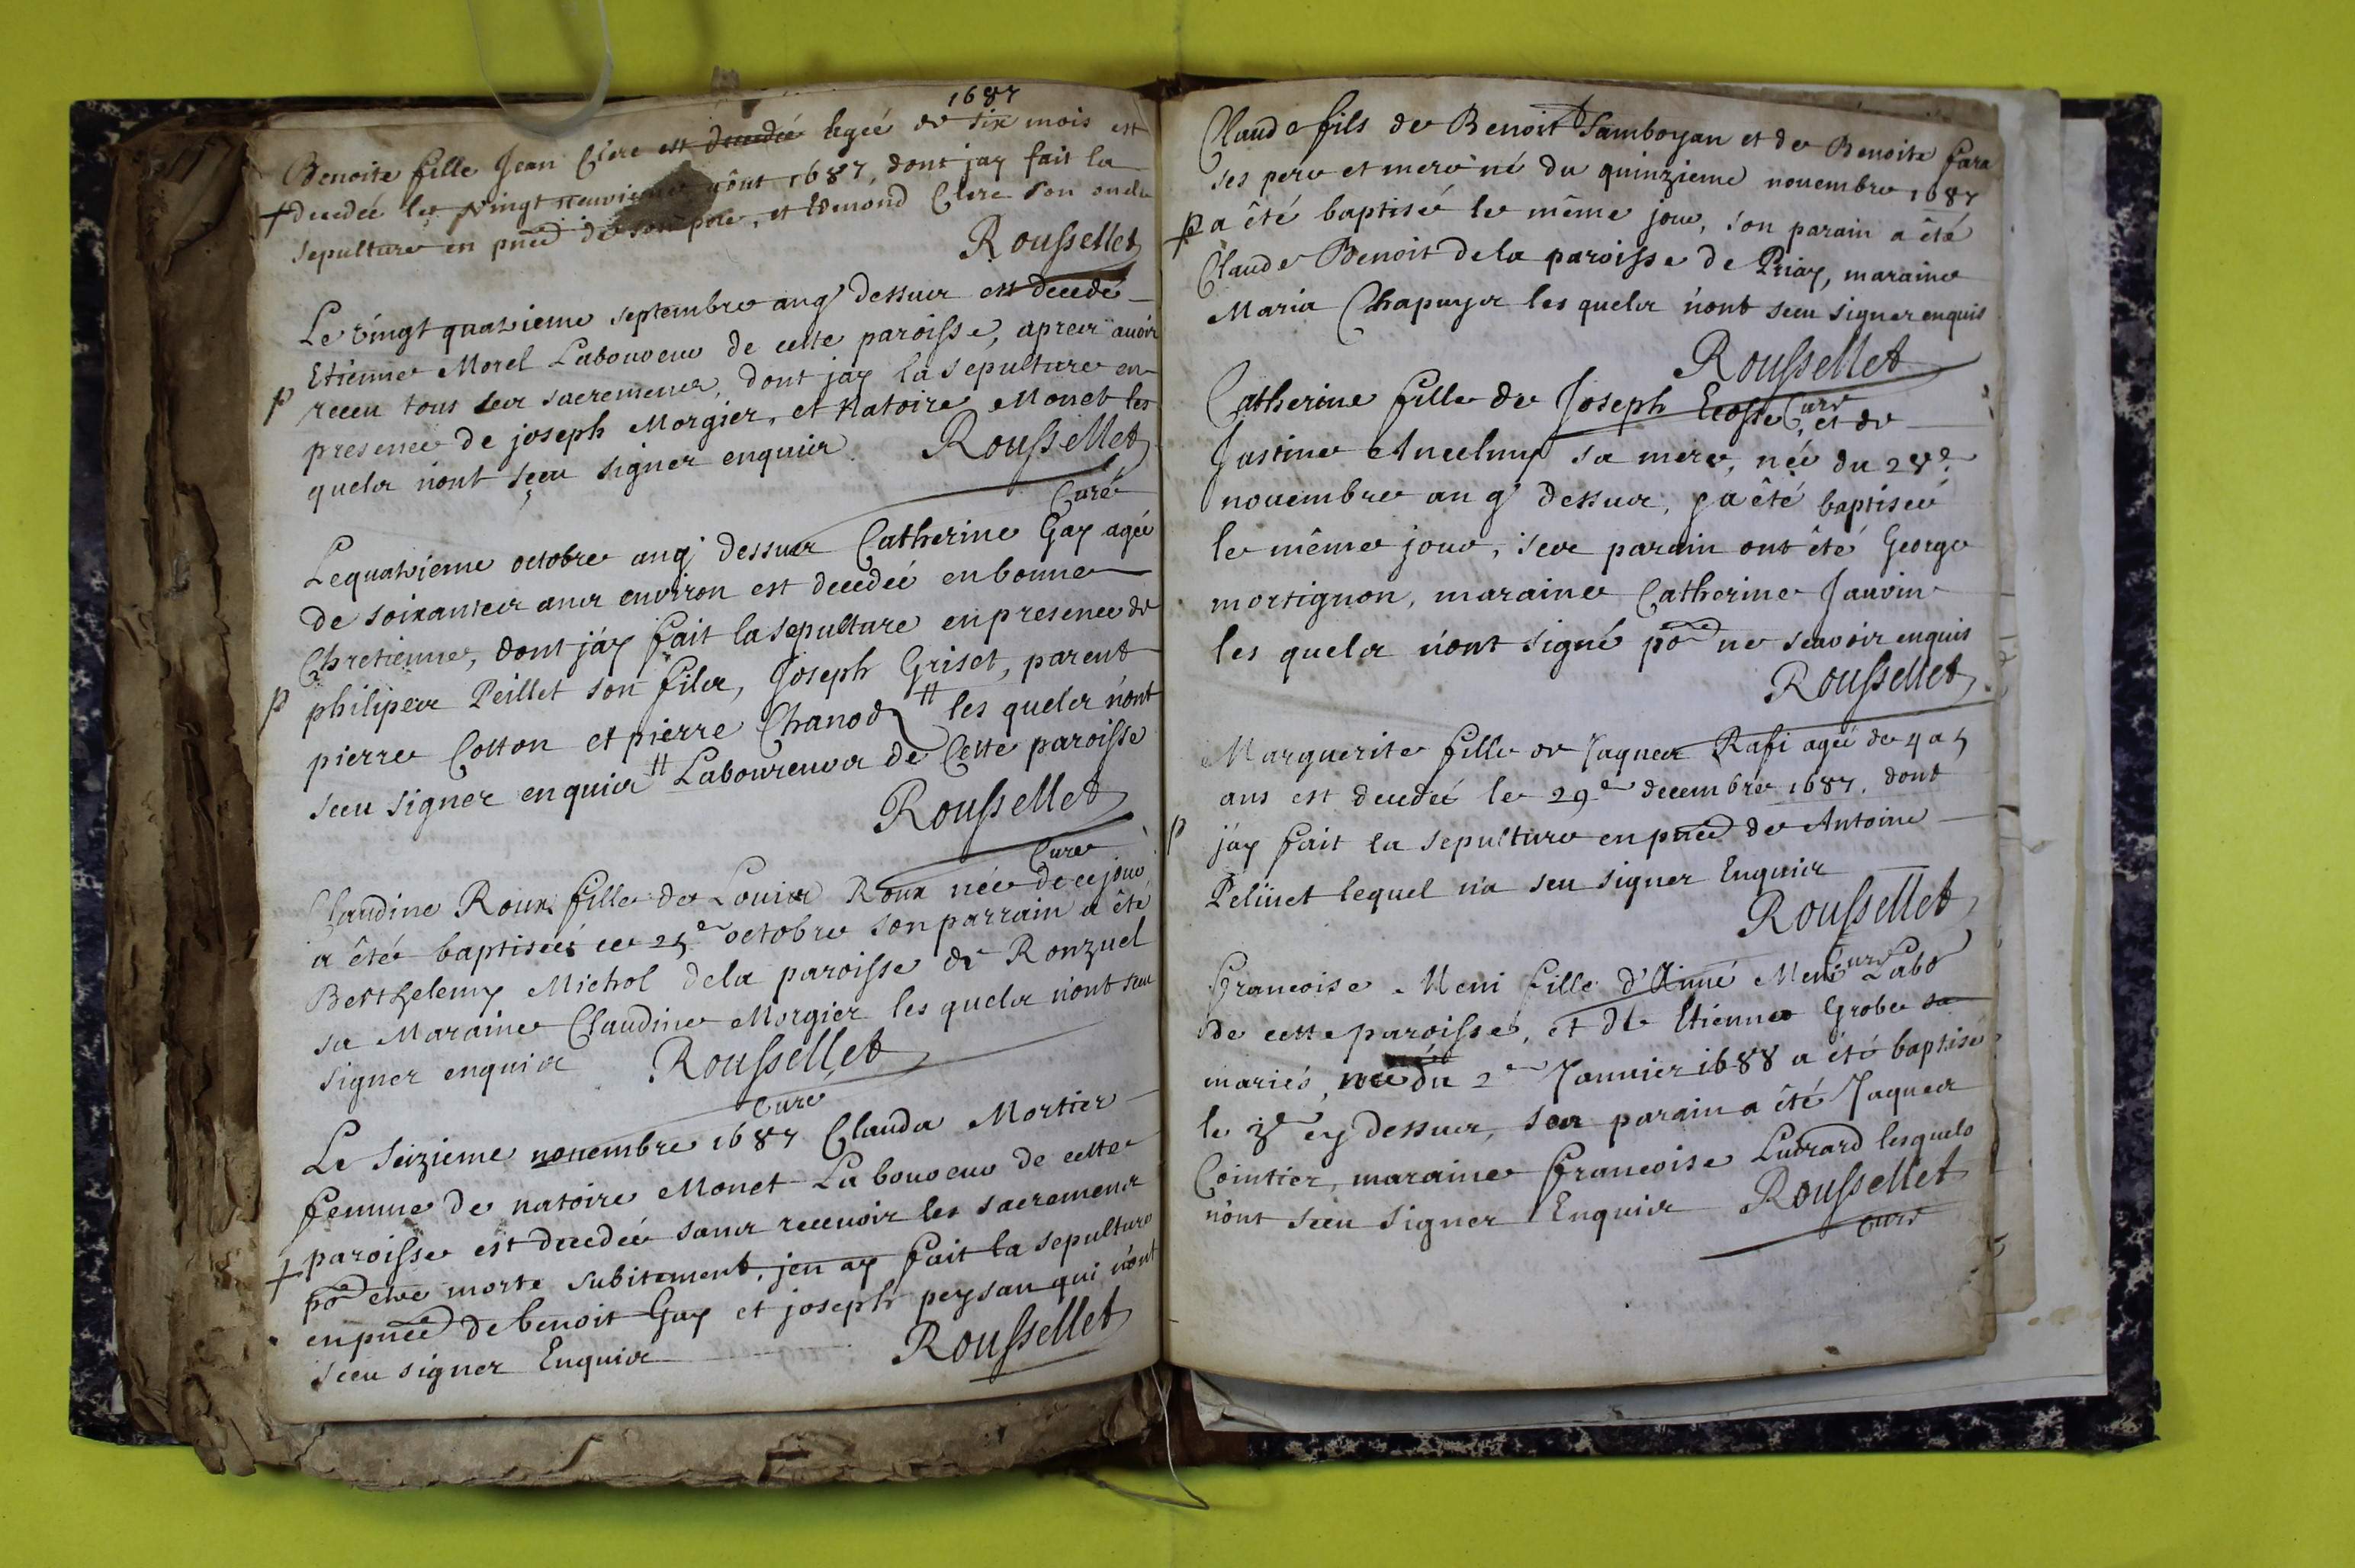 1687
Benoite fille Jean Clerc est decedeé ageé de six mois est
decedeé le vingt neuvieme aôut 1687, dont jay fait la
sepulture en pnce de son pere, et Edmond Clerc son oncle
Roussellet
Le vingt quatrieme septembre an q dessus est decedé
Etienne Morel Laboureur de cette paroisse, apres auoir
p receu tous ses sacremens, dont jay la sepulture en
presence de joseph Morgier, et Natoire Monet les
quels n'ont sceu signer enquis. Roussellet
Curé
Le quatrieme octobre an q dessus Catherine Gay ageé
de soixantes ans environ est decedeé en bonne
Chretienne, dont j'ay fait la sepulture en presence de
p philipes Peillet son fils, Joseph Griset, parent
pierre Cotton et pierre Chanod # les quels n'ont
sceu signer enquis # Laboureurs de Cette paroisse
Roussellet
Curé
Claudine Roux fille de Louis Roux neé de ce jour
a êté baptiseé ce 25e octobre son parrain a êté
Berthelemy Michol dela paroisse de Ronzuel
sa Maraine Claudine Morgier les quels n'ont sceu
signer enquis Roussellet
Curé
Le seizieme nouembre 1687 Clauda Mortier
femme de natoire Monet Laboureur de cette
paroisse est decedeé sans receuoir les sacremens
por etre morte subitement, jen ay fait la sepulture
en pnce de benoit Gay et joseph peysan qui n'ont
sceu signer Enquis
Roussellet
Claude fils de Benoit Tamboyan et de Benoite fara
ses pere et mere né du quinzieme nouembre 1687
p a êté baptisé le même jour, son parain a êté
Claude Benoit dela paroisse de Priay, maraine
Maria Chapuys les quels n'ont sceu signer enquis
Roussellet
Curé
Catherine fille de Joseph Ecosse, et de
Justine Ancelmy sa mere, neé du 28e
nouembre an q dessus, a êté baptiseé
le même jour, ses parain ont êté George
mortignon, maraine Catherine Janvin
les quels n'ont signé por ne scavoir enquis
Roussellet
Marguerite fille de Jaques Rafi ageé de 4 a 5
ans est decedeé le 29e decembre 1687, dont
p j'ay fait la sepulture en pnce de Antoine
Pelinet lequel n'a sceu signer Enquis
Roussellet
Curé
francoise Meni fille d'Aimé Meni Labo
de cette paroisse, et de Etienne Grobe sa
mariés, neé du 2e Januier 1688 a êté baptisé
le 3e cy dessus, son parain a êté Jaques
Cointier, maraine francoise Ludrard lesquels
n'ont sceu signer Enquis Roussellet
Curé